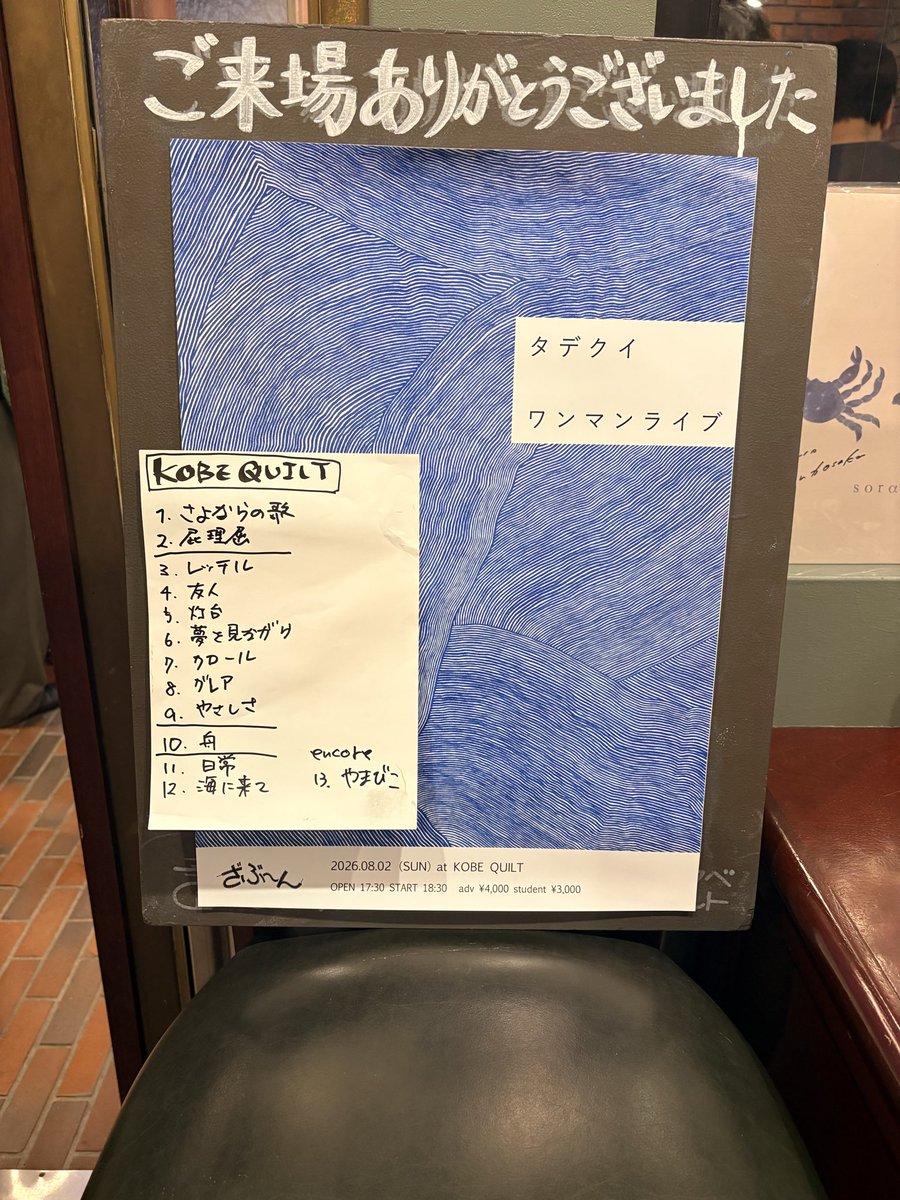 ご来場ありがとうございました
タデクイ
ワンマンライブ
KOBE QUILT
1. さよならの歌
2. 屁理屈
3. レッテル
4. 友人
5. 灯台
6. 夢を見ながら
7. カロール
8. グレア
9. やさしさ
10. 舟
11. 日常
12. 海に来て
encore
13. やまびこ
ざぶーん
2026.08.02 (SUN) at KOBE QUILT
OPEN 17:30 START 18:30 adv ¥4,000 student ¥3,000
sora